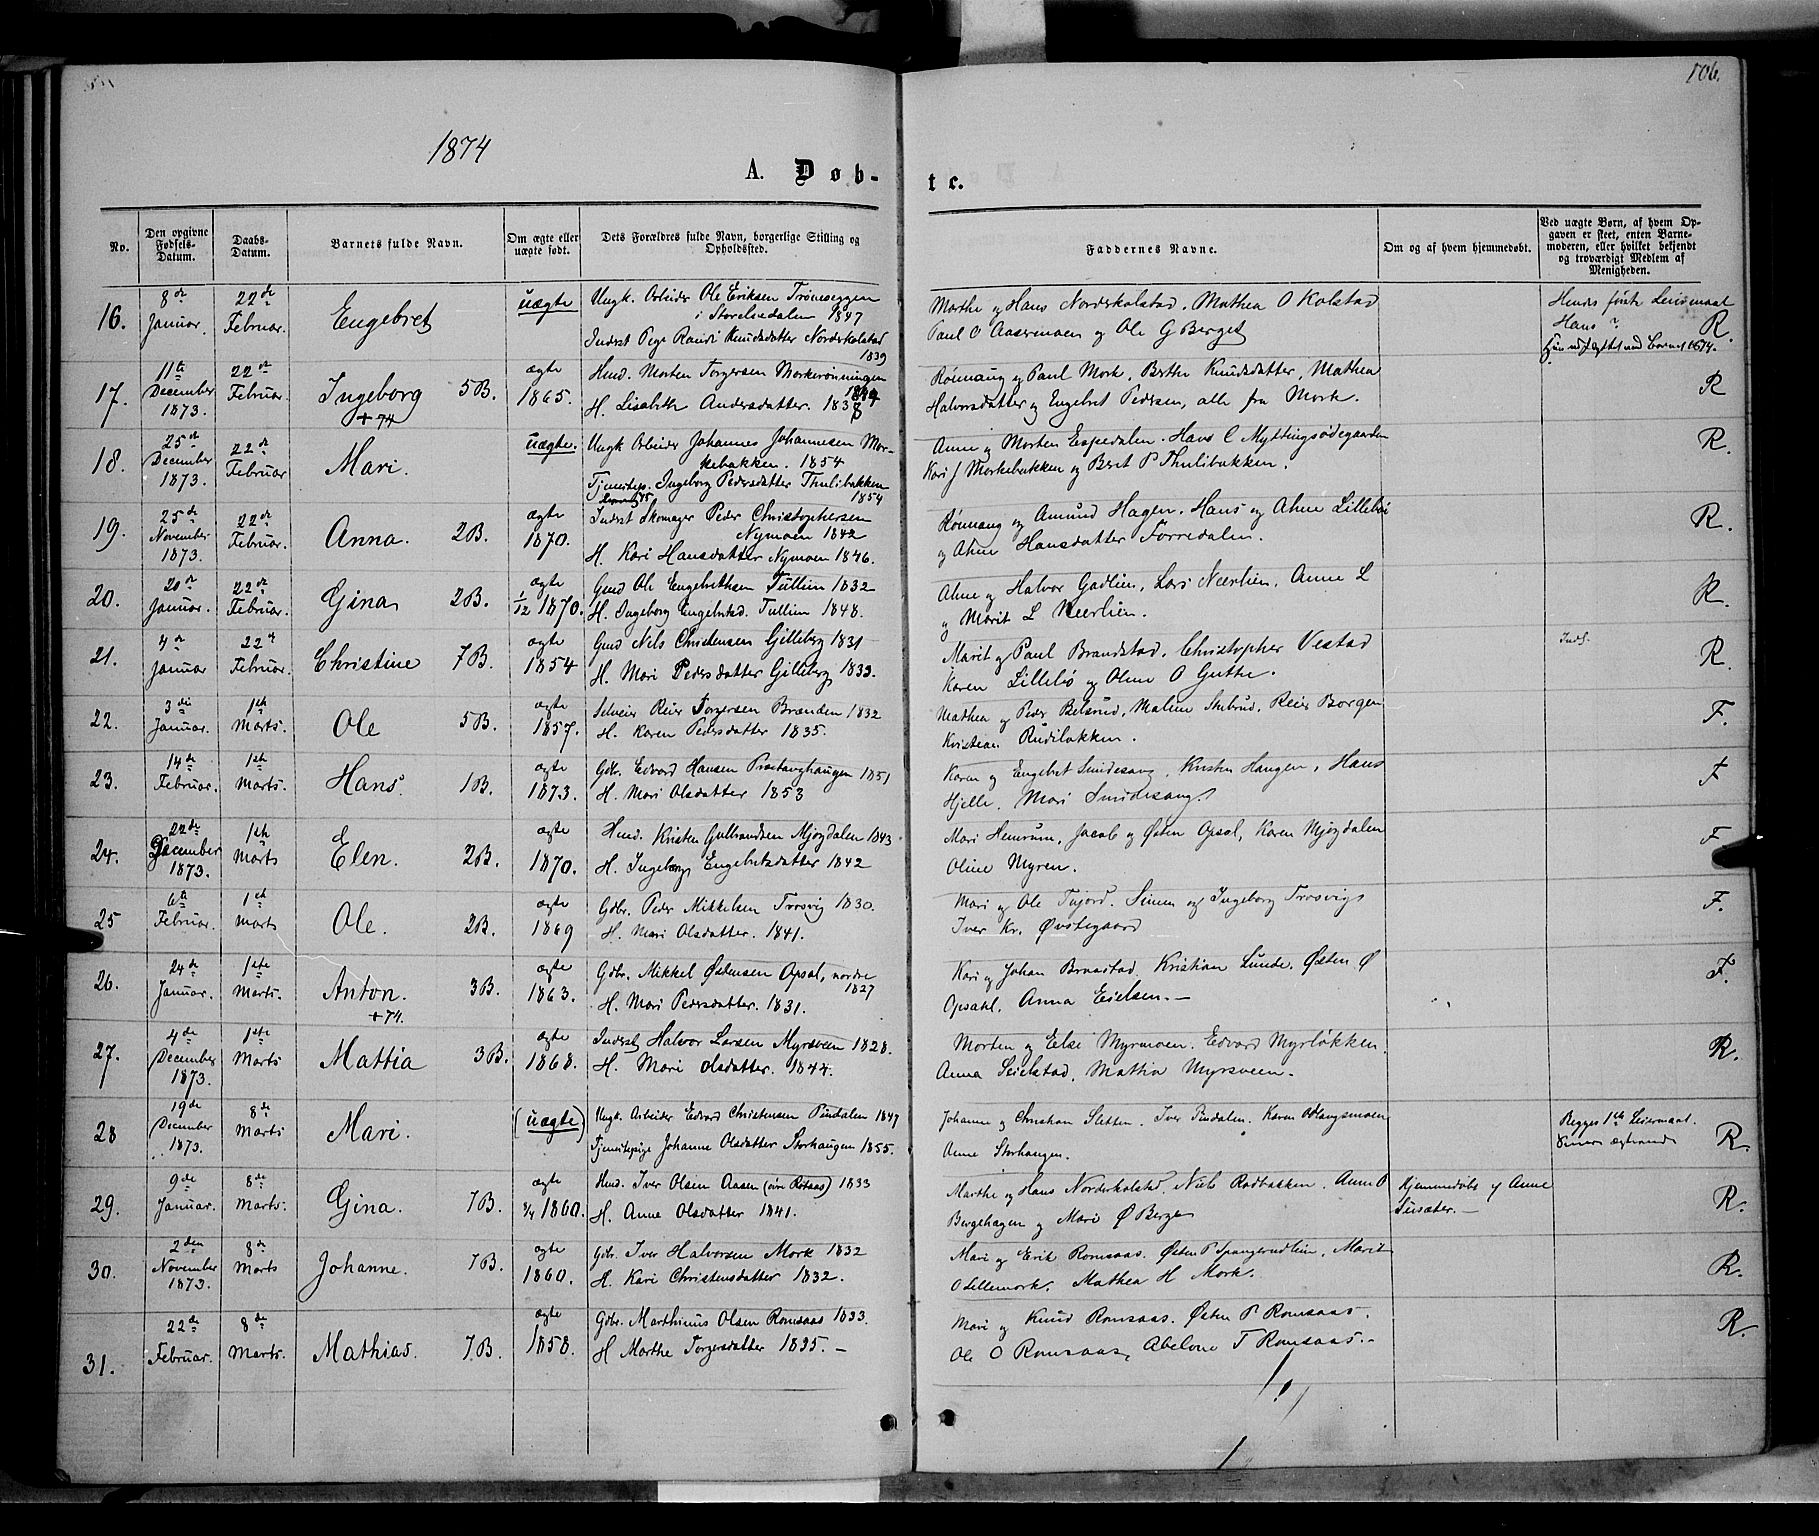 106.
1874
A. Døb-
te.
No.
Den opgivne Fødsels-Datum.
Daabs-Datum.
Barnets fulde Navn.
Om ægte eller uægte født.
Dets Forældres fulde Navn, borgerlige Stilling og Opholdssted.
Faddernes Navne.
Om og af hvem hjemmedøbt.
Ved uægte Børn, af hvem Opgaven er skeet, enten Barnemoderen, eller hvilket bekjendt og troværdigt Medlem af Menigheden.
16. 8de Januar. 22de Februar. Engebret uægte
Ungk. Arbeider Ole Eriksen Trøneseggen
i Storelvedalen 1847
Inderst Pige Randi Knudsdatter Nordskolstad
1839
Marthe og Hans Nordskolstad. Mathea O Kolstad
Paul O Aasermoen og Ole G Berget
Hendes første Leiermaal
Hans ?
R.
17. 11te December 1873. 22de Februar. Ingeborg 5B. ægte 1865.
+ 74
Husd. Morten Torgersen Morkerønningen
H. Lisabeth Andersdatter. 1838
Rønnaug og Paul Mork. Berthe Knudsdatter, Mathea
Halvorsdatter og Engebret Pedersen, alle fra Mork.
R
18. 25de December 1873. 22de Februar Mari. uægte.
Ungk Arbeider Johannes Johannesen Mor-
kebakken. 1854
Tjenestep. Ingeborg Pedersdatter Thulibakken
1854
Anne og Morten Espedalen. Hans C Myttingsødegaarden
Kari J Morkebakken og Beret P Thulibakken.
R.
19. 25de November 1873. 22de Februar. Anna. 2B. ægte 1870.
Inderst Skomager Peder Christophersen
Nymoen 1842
H. Kari Hansdatter Nymoen 1846.
Rønnaug og Amund Hagen. Hans og Ahne Lillebø
og Ahne Hansdatter Torredalen.
R.
20. 20de Januar. 22de Februar. Gina 2B. ægte 1/12 1870.
Gmd Ole Engebrethsen Tullien 1832
H. Ingeborg Engebretsd. Tullien 1848.
Ahne og Halvor Gadlien, Lars Neerlien. Anne L
og Marit L Neerlien.
R.
21. 4de Januar 22de Februar. Christine 7B. ægte 1854
Gmd Nils Christensen Gilleberg 1831
H. Mari Pedersdatter Gilleberg 1833.
Marit og Paul Brandstad. Christopher Vestad
Karen Lillebø og Oline O Gutte.
Inds.
R.
22. 3die Januar. 1ste Marts. Ole 5B. ægte 1857.
Selveier Reier Torgersen Brænden 1832
H. Karen Pedersdatter 1835.
Mathea og Peder Belsrud, Maline Stubrud, Reier Borgen
Kristian Rudiløkken.
F.
23. 14de Februar. 1ste Marts. Hans 1B. ægte 1873.
Gdb. Edvard Hansen Præstanghaugen 1851
H. Mari Olsdatter 1853
Karen og Engebret Smidesang, Kristen Haugen, Hans
Hjelle. Mari Smidesang.
F
24. 22de December 1873. 1ste Marts Elen. 2B. ægte 1870.
Husd. Kristen Gulbrandsen Mjøgdalen 1843
H. Ingeborg Engebretsdatter 1842
Mari Hemrum, Jacob og Østen Opsal, Karen Mjøgdalen
Oline Myren.
F
25 6te Februar. 1ste Marts Ole. 2B. ægte 1869
Gdbr. Peder Mikkelsen Trosvig 1830.
H. Mari Olsdatter. 1841.
Mari og Ole Tajord. Simen og Ingeborg Trosvig
Iver Kr. Øvstegaard
F.
26. 24de Januar. 1ste Marts. Anton. 3B. ægte 1863.
+ 74.
Gdbr. Mikkel Østensen Opsal, nordre
1827
H. Mari Pedersdatter. 1831.
Kari og Johan Braastad, Kristian Lunde, Østen Ø
Opsahl, Anna Eielsen. —
F.
27. 4de December 1873. 1ste Marts Mattia 3B. ægte 1868.
Inderst Halvor Larsen Myrsveen 1828.
H. Mari Olsdatter. 1844.
Morten og Else Myrmoen. Edvard Myrløkken.
Anna Seielstad, Mathia Myrsveen.
R.
28 19de December 1873. 8de Marts Mari. (uægte)
Ungk. Arbeider Edvard Christensen Pindalen 1847
Tjenestepige Johanne Olsdatter Storhaugen 1855.
Johanne og Christian Sletten. Iver Pindalen. Karen O Langsmoen
Anne Storhaugen.
Begges 1ste Leiermaal.
R.
29. 9de Januar. 8de Marts. Gina. 7B. ægte 1860.
Husd. Iver Olsen Aasen 1833
H. Anne Olsdatter 1841.
Marthe og Hans Nordskolstad. Niels Rødbakken. Anne O
Bergehagen og Mari Ø Berge
Hjemmedøbt af Anne
R.
30. 2den November 1873. 8de Marts Johanne. 7B. ægte 1860.
Gdbr. Iver Halvorsen Mork 1832
H. Kari Christensdatter 1832.
Mari og Erik Romsaas. Østen P Spangrudlien, Marit
O Lillemork. Mathea H Mork.
R.
31. 22de Februar. 8de Marts. Mathias. 7B. ægte 1858.
Gdbr. Marthinus Olsen Romsaas 1833.
H Marthe Torgersdatter 1835. —
Mari og Knud Romsaas. Østen P Romsaas.
Ole O Romsaas, Abelone T Romsaas. -
R.